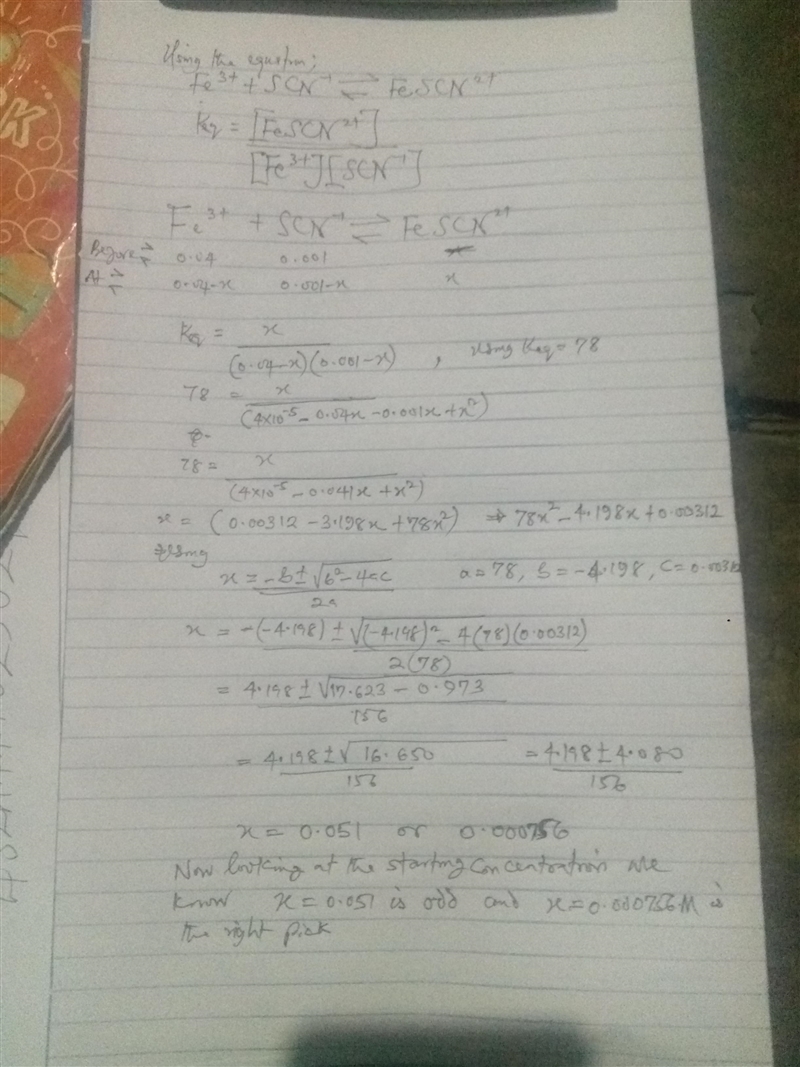 Using the equation;
Fe³⁺ + SCN⁻¹ ⇌ FeSCN²⁺
Keq = [FeSCN²⁺]
[Fe³⁺][SCN⁻¹]
Fe³⁺ + SCN⁻¹ ⇌ FeSCN²⁺
Before ⇌ 0.04 0.001
At ⇌ 0.04-x 0.001-x x
Keq = x
(0.04-x)(0.001-x) , using Keq = 78
78 = x
(4×10⁻⁵ - 0.04x - 0.001x + x²)
78 = x
(4×10⁻⁵ - 0.041x + x²)
x = (0.00312 - 3.198x + 78x²) ⇒ 78x² - 4.198x + 0.00312
Using
x = -b ± √b² - 4ac a = 78, b = -4.198, C = 0.00312
2a
x = -(-4.198) ± √(-4.198)² - 4(78)(0.00312)
2(78)
= 4.198 ± √17.623 - 0.973
156
= 4.198 ± √16.650 = 4.198 ± 4.080
156 156
x = 0.051 or 0.000756
Now looking at the starting concentration we
know x = 0.051 is odd and x = 0.000756M is
the right pick